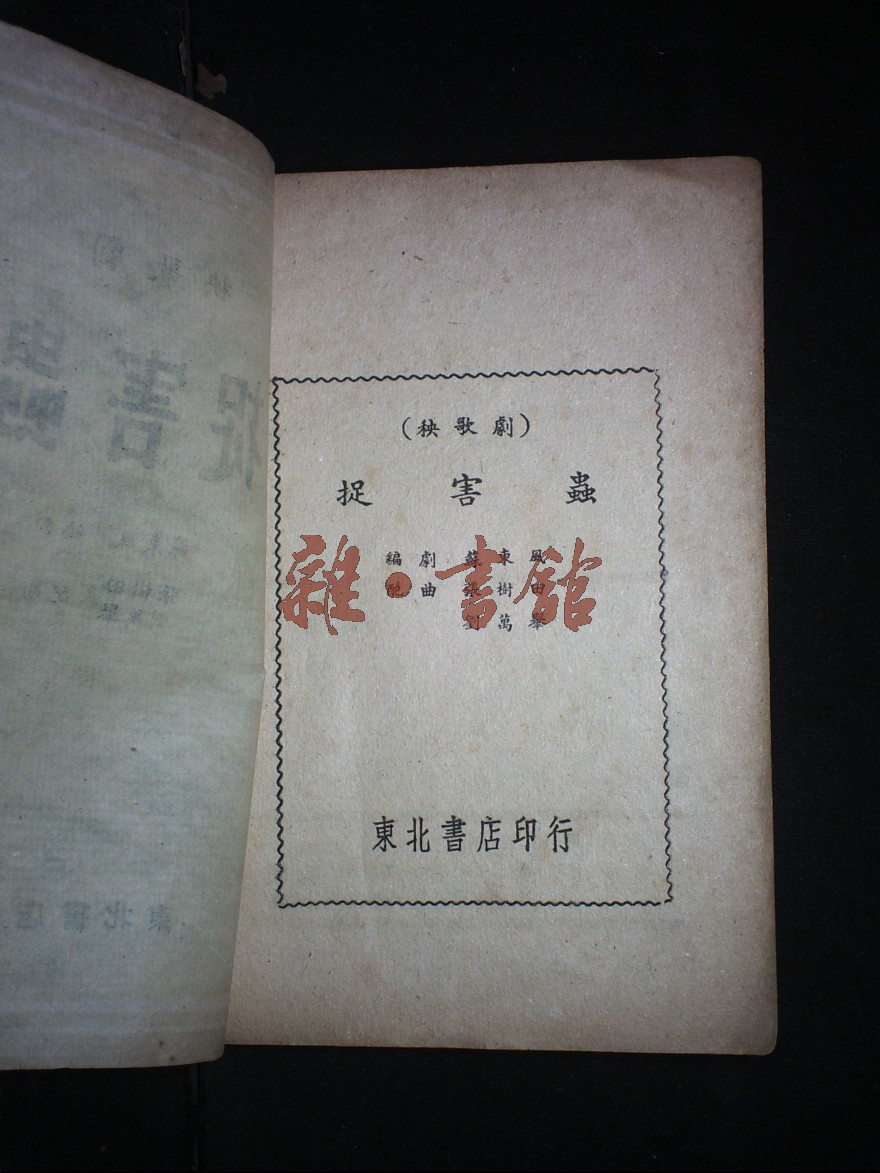 （秧歌劇）
捉害蟲
編劇 蘇東風
配曲 張樹田
劉萬舉
雜·書館
東北書店印行
東北書店